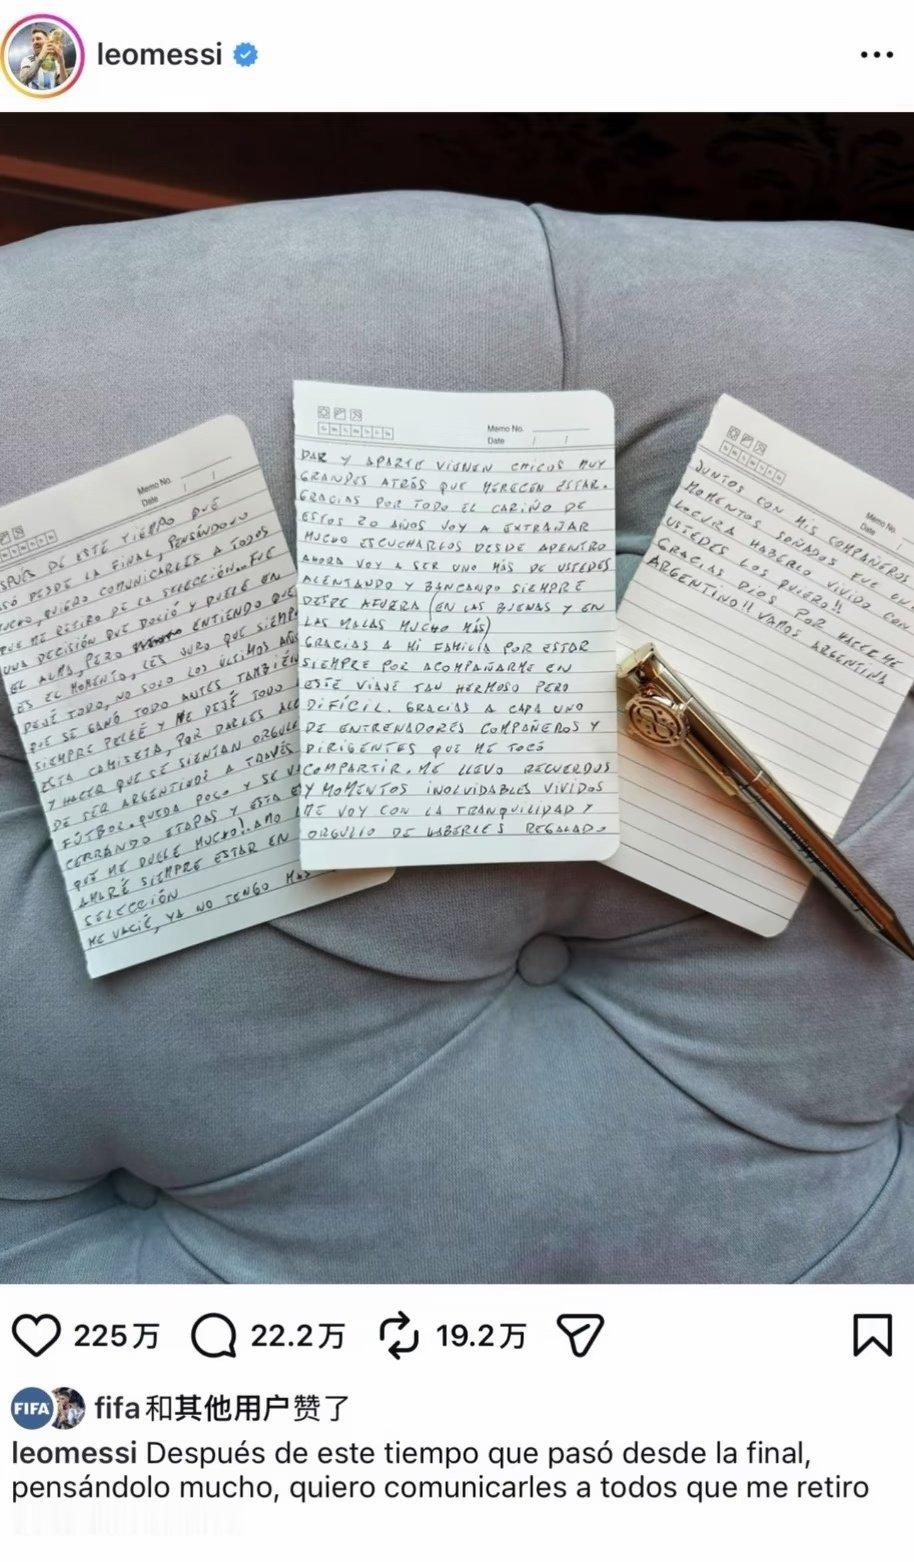 leomessi
Memo No.
Date / /
DESPUÉS DE ESTE TIEMPO QUE
PASÓ DESDE LA FINAL, PENSÁNDOLO
MUCHO, QUIERO COMUNICARLES A TODOS
QUE ME RETIRO DE LA SELECCIÓN... FUE
UNA DECISIÓN QUE DOLIÓ Y DUELE EN
EL ALMA, PERO ENTIENDO QUE
ES EL MOMENTO, LES JURO QUE SIEMP
DEJÉ TODO, NO SOLO LOS ÚLTIMOS AÑOS
QUE SE GANÓ TODO ANTES TAMBIÉN
SIEMPRE PELEÉ Y ME DEJÉ TODO
ESTA CAMISETA, POR DARLES ALE
Y HACER QUE SE SIENTAN ORGULL
DE SER ARGENTINOS A TRAVÉS
FÚTBOL. QUEDA POCO Y SE VA
CERRANDO ETAPAS Y ESTA E
QUE ME DUELE MUCHO!. AMO
AMARÉ SIEMPRE ESTAR EN
SELECCIÓN
ME VACIÉ, YA NO TENGO MÁS
Memo No.
Date / /
DAR Y APARTE VIENEN CHICOS MUY
GRANDES ATRÁS QUE MERECEN ESTAR.
GRACIAS POR TODO EL CARIÑO DE
ESTOS 20 AÑOS VOY A EXTRAÑAR
MUCHO ESCUCHARLOS DESDE ADENTRO
AHORA VOY A SER UNO MÁS DE USTEDES
ALENTANDO Y BANCANDO SIEMPRE
DESDE AFUERA (EN LAS BUENAS Y EN
LAS MALAS MUCHO MÁS)
GRACIAS A MI FAMILIA POR ESTAR
SIEMPRE POR ACOMPAÑARME EN
ESTE VIAJE TAN HERMOSO PERO
DIFÍCIL. GRACIAS A CADA UNO
DE ENTRENADORES COMPAÑEROS Y
DIRIGENTES QUE ME TOCÓ
COMPARTIR. ME LLEVO RECUERDOS
Y MOMENTOS INOLVIDABLES VIVIDOS
ME VOY CON LA TRANQUILIDAD Y
ORGULLO DE HABERLES REGALADO
Memo No.
Date /
JUNTOS CON MIS COMPAÑEROS
MOMENTOS SOÑADOS FUE UNA
LOCURA HABERLO VIVIDO CON
USTEDES LOS QUIERO!!
GRACIAS DIOS POR HACERME
ARGENTINO!! VAMOS ARGENTINA
225万 22.2万 19.2万
FIFA fifa和其他用户赞了
leomessi Después de este tiempo que pasó desde la final,
pensándolo mucho, quiero comunicarles a todos que me retiro